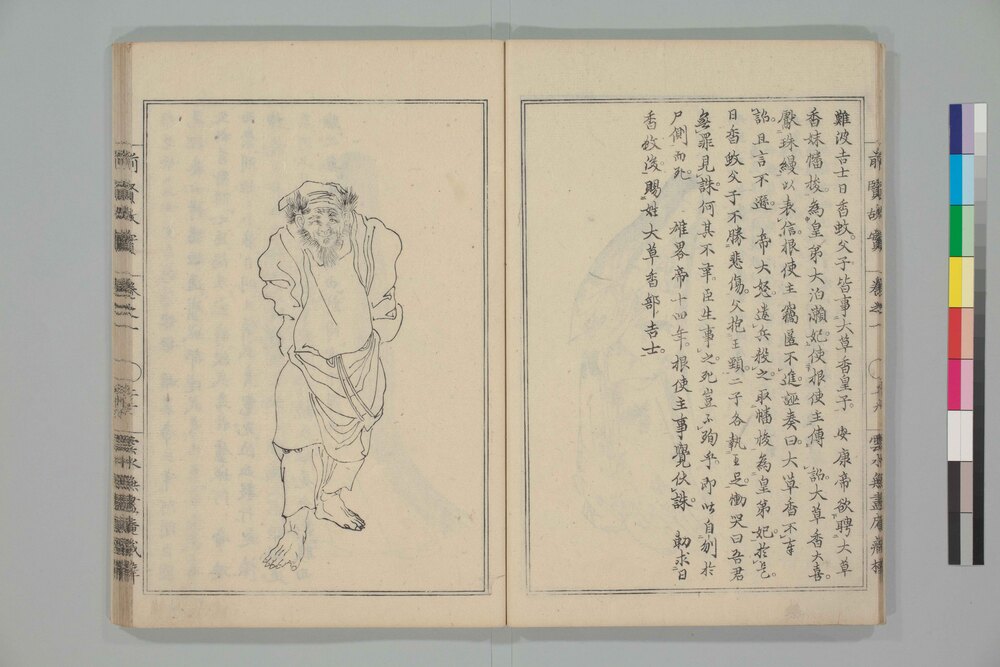 難波吉士日香蚊父子皆事大草香皇子。安康帝欲聘大草
香妹幡梭。為皇弟大泊瀬妃。使根使主傳 詔大草香大喜。
獻珠縵以表信。根使主竊匿不進。誣奏曰大草香不奉
詔且言不遜 帝大怒遣兵殺之取幡梭為皇弟妃。於是
日香蚊父子不勝悲傷。父抱王頸二子各執王足。慟哭曰吾君
無罪見誅。何其不幸。臣生事之死豈不殉乎。即皆自刎於
尸側而死。 雄畧帝十四年。根使主事覺伏誅 勅求日
香蚊後。賜姓大草香部吉士。
前賢故實 卷之一
前賢故實 卷之一